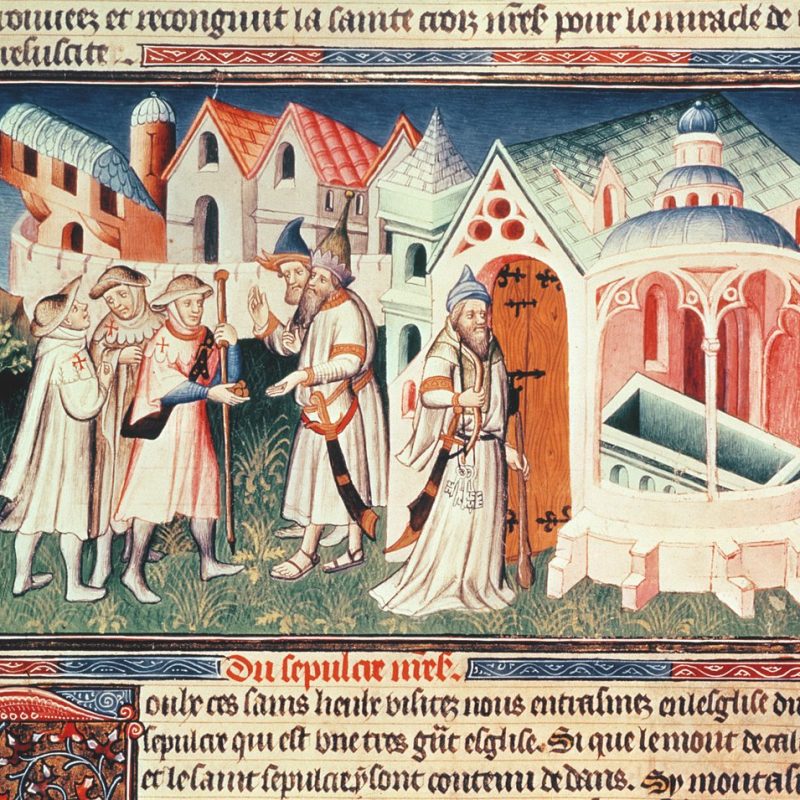 et recongnut la sainte croix nre sr pour le miracle de
resuscite.
Du sepulcre nre sr.
oulx ces sains lieulx visitez nous entrasmes en lesglise du
sepulcre qui est vne tres gãt esglise. Si que le mont de cal
et le saint sepulcre y sont contenu dedans. Sy montas